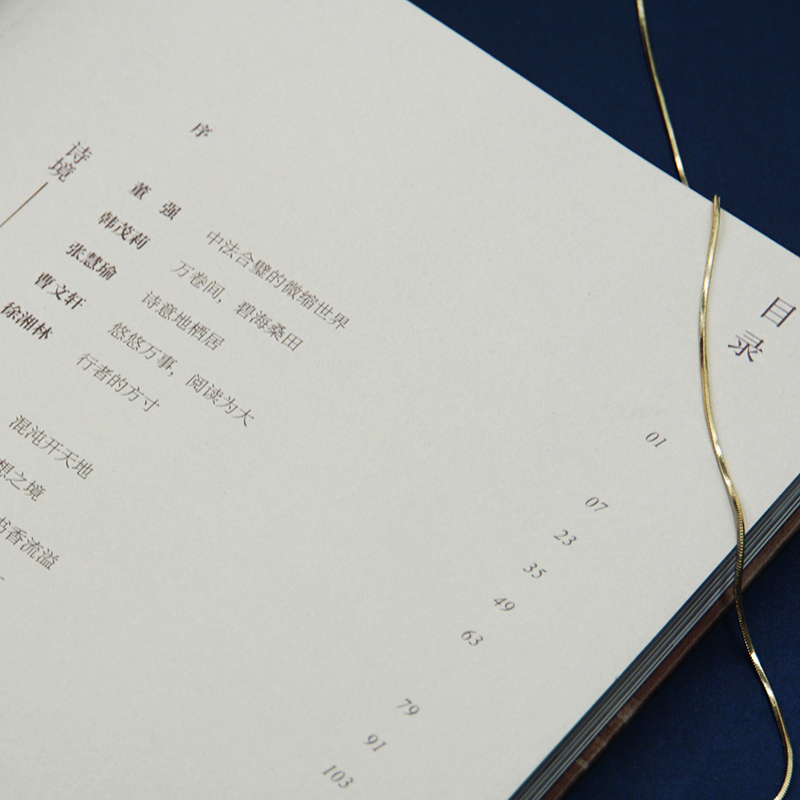 目录
序 01
诗境
董强 中法合璧的微缩世界 07
韩茂莉 万卷间，碧海桑田 23
张慧瑜 诗意地栖居 35
曹文轩 悠悠万事，阅读为大 49
徐湘林 行者的方寸 63
混沌开天地 79
想之境 91
书香流溢 103